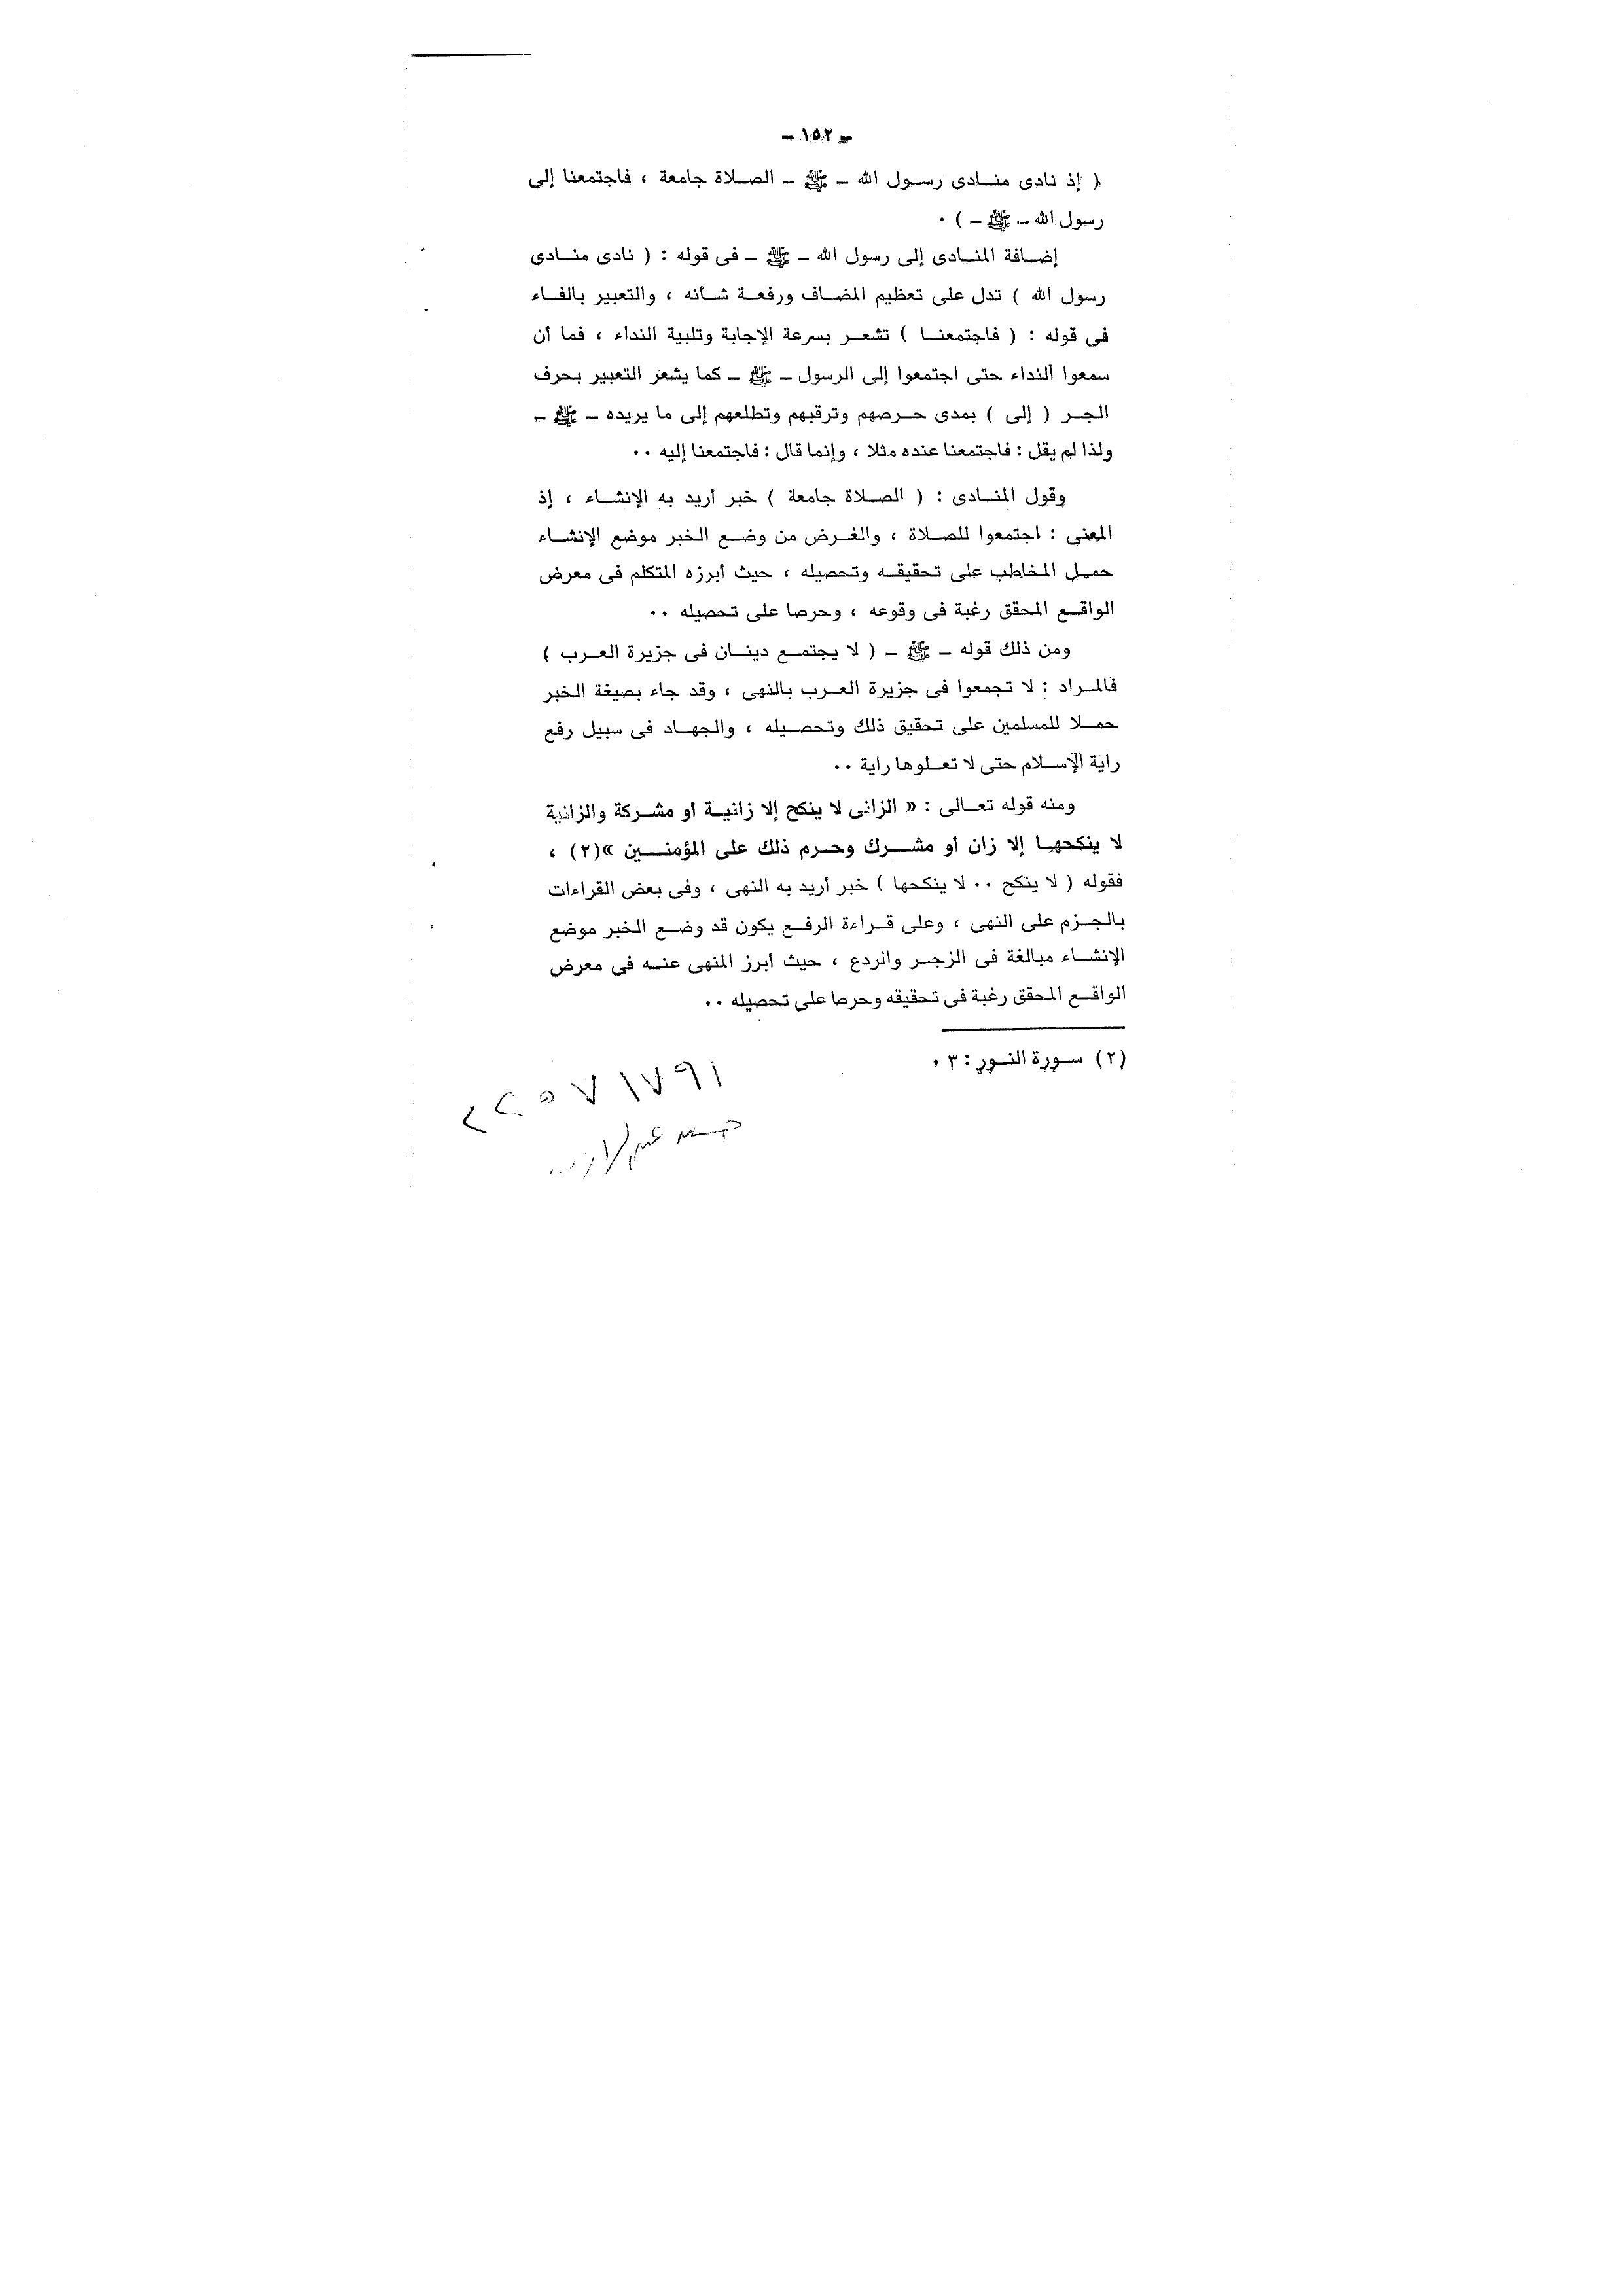 ـ ١٥٢ ـ
( إذ نادى منـادى رسـول الله ـ ﷺ ـ الصـلاة جامعة ، فاجتمعنا إلى
رسول الله ـ ﷺ ـ ) ٠
إضـافة المنـادى إلى رسول الله ـ ﷺ ـ فى قوله : ( نادى منـادى
رسول الله ) تدل على تعظيم المضـاف ورفعـة شـأنه ، والتعبير بالفـاء
فى قوله : ( فاجتمعنـا ) تشعـر بسرعة الإجابة وتلبية النداء ، فما أن
سمعوا النداء حتى اجتمعوا إلى الرسول ـ ﷺ ـ كما يشعر التعبير بحرف
الجـر ( إلى ) بمدى حـرصهم وترقبهم وتطلعهم إلى ما يريده ـ ﷺ ـ
ولذا لم يقل : فاجتمعنا عنده مثلا ، وإنما قال : فاجتمعنا إليه ٠٠
وقول المنـادى : ( الصـلاة جامعة ) خبر أريد به الإنشـاء ، إذ
المعنى : اجتمعوا للصـلاة ، والغـرض من وضـع الخبر موضع الإنشـاء
حمـل المخاطب على تحقيقـه وتحصيله ، حيث أبرزه المتكلم فى معرض
الواقـع المحقق رغبة فى وقوعه ، وحرصا على تحصيله ٠٠
ومن ذلك قوله ـ ﷺ ـ ( لا يجتمـع دينـان فى جزيرة العـرب )
فالمـراد : لا تجمعوا فى جزيرة العـرب بالنهى ، وقد جاء بصيغة الخبر
حمـلا للمسلمين على تحقيق ذلك وتحصـيله ، والجهـاد فى سبيل رفع
راية الإسـلام حتى لا تعـلوها راية ٠٠
ومنه قوله تعـالى : « الزانى لا ينكح إلا زانيـة أو مشـركة والزانية
لا ينكحهـا إلا زان أو مشـرك وحـرم ذلك على المؤمنـين »(٢) ،
فقوله ( لا ينكح ٠٠ لا ينكحها ) خبر أريد به النهى ، وفى بعض القراءات
بالجـزم على النهى ، وعلى قـراءة الرفـع يكون قد وضـع الخبر موضع
الإنشـاء مبالغة فى الزجـر والردع ، حيث أبرز المنهى عنـه فى معرض
الواقـع المحقق رغبة فى تحقيقه وحرصا على تحصيله ٠٠
(٢) سـورة النـور : ٣ ٠